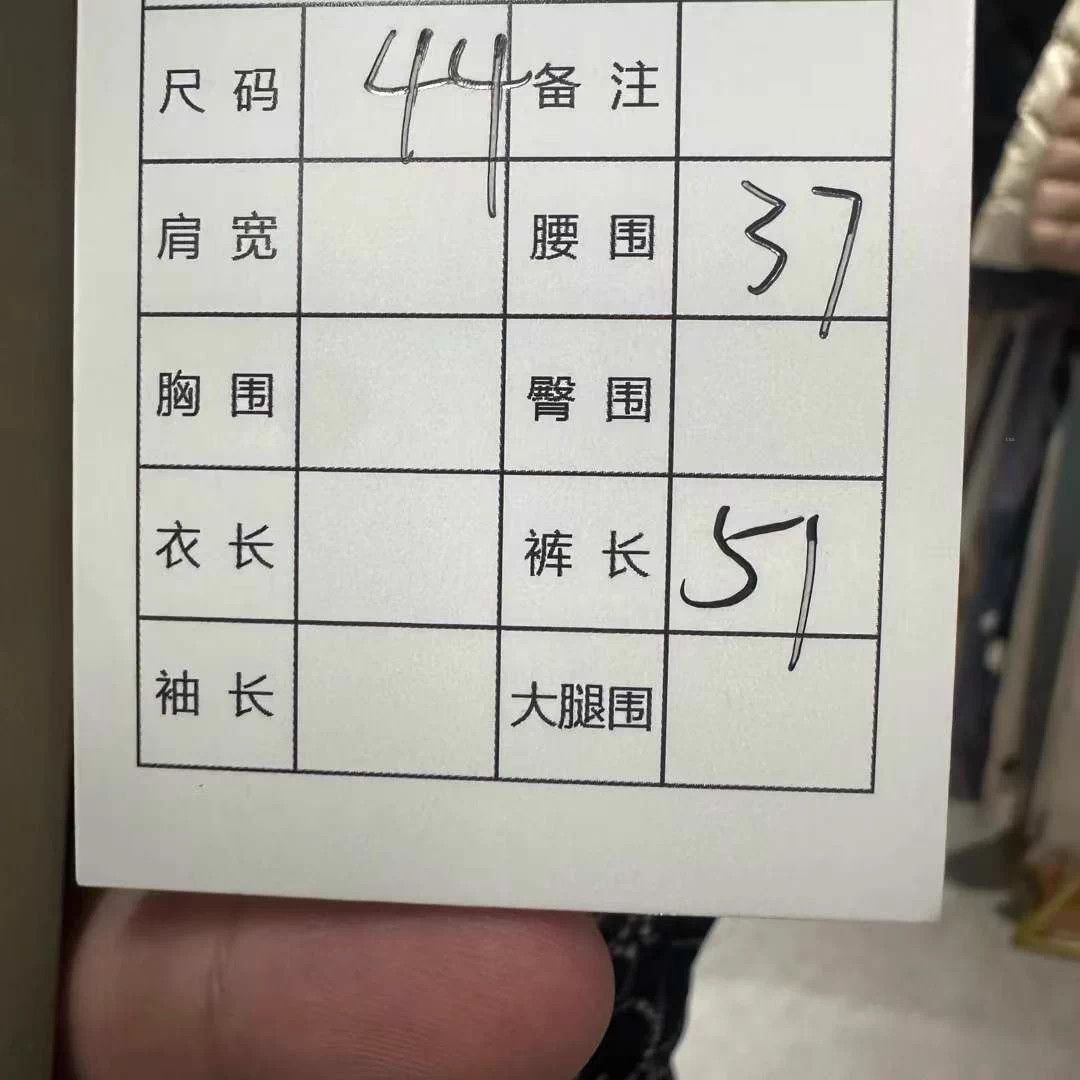 尺码 44 备注
肩宽 腰围 37
胸围 臀围
衣长 裤长 51
袖长 大腿围